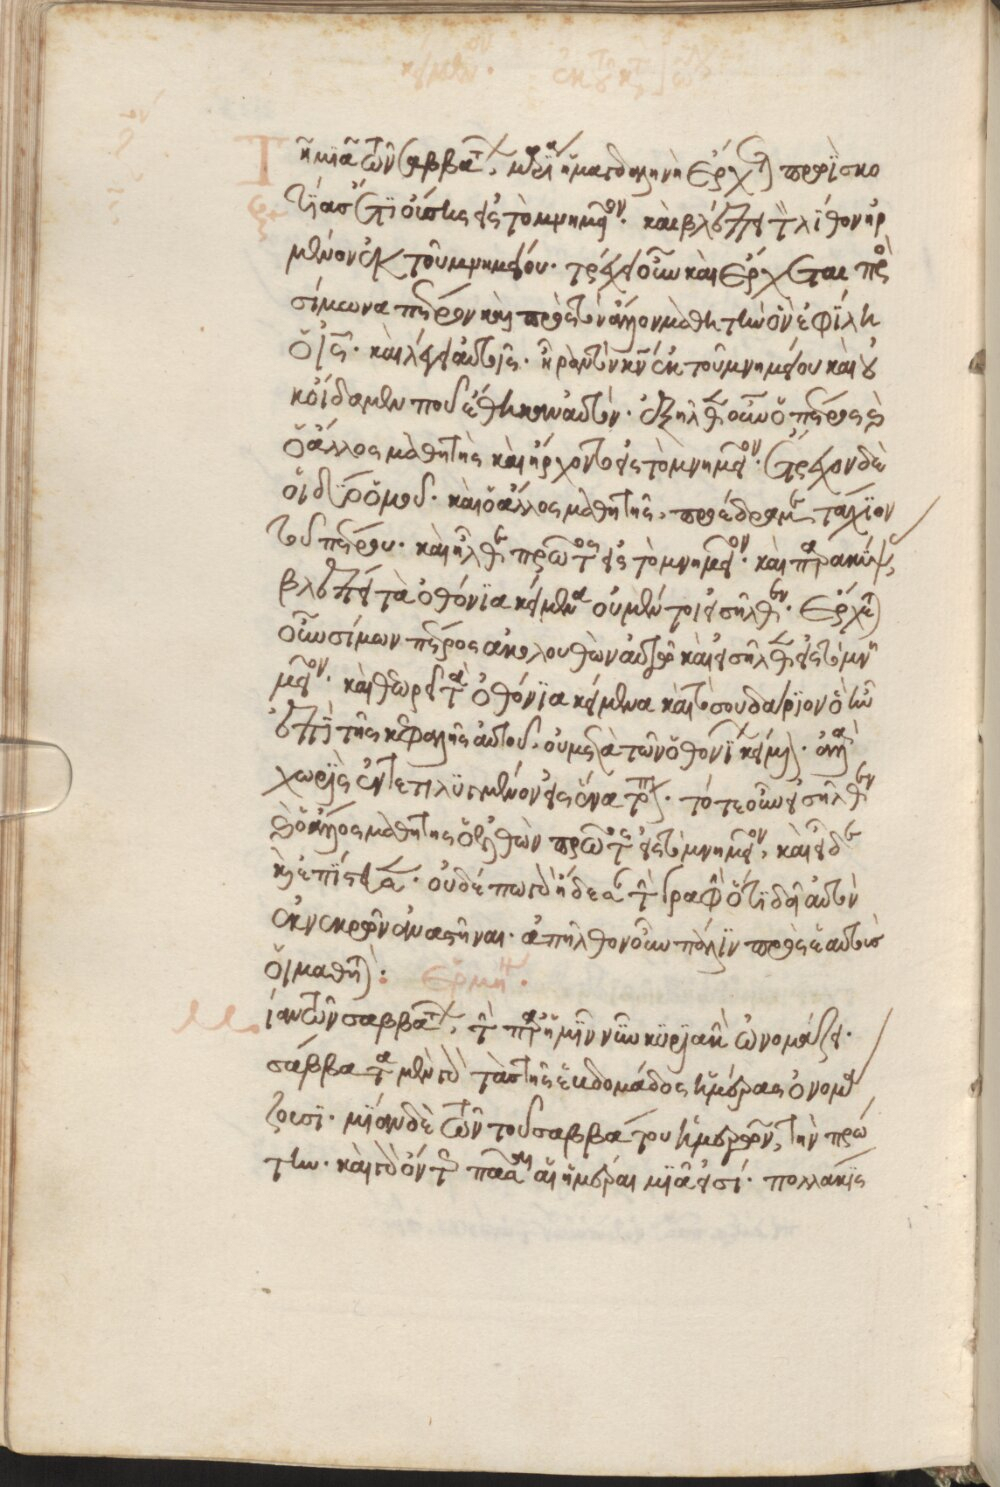 Τῆ μιᾶ τῶν σαββάτων, μαρία ἡ μαγδαληνὴ ἔρχεται πρωῒ σκο
τίας ἔτι οὔσης εἰς τὸ μνημεῖον. καὶ βλέπει τὸν λίθον ἠρ
μένον ἐκ τοῦ μνημείου. τρέχει οὖν καὶ ἔρχεται πρὸς
σίμωνα πέτρον καὶ πρὸς τὸν ἄλλον μαθητὴν ὃν ἐφίλει
ὁ ἰησοῦς. καὶ λέγει αὐτοῖς. ἦραν τὸν κύριον ἐκ τοῦ μνημείου καὶ οὐ
κ οἴδαμεν ποῦ ἔθηκαν αὐτόν. ἐξῆλθεν οὖν ὁ πέτρος καὶ
ὁ ἄλλος μαθητὴς καὶ ἤρχοντο εἰς τὸ μνημεῖον. ἔτρεχον δὲ
οἱ δύο ὁμοῦ. καὶ ὁ ἄλλος μαθητὴς, προέδραμε τάχιον
τοῦ πέτρου. καὶ ἦλθε πρῶτος εἰς τὸ μνημεῖον. καὶ παρακύψας,
βλέπει τὰ ὀθόνια κείμενα οὐ μέντοι εἰσῆλθεν. ἔρχεται
οὖν σίμων πέτρος ἀκολουθῶν αὐτῷ καὶ εἰσῆλθεν εἰς τὸ μνη
μεῖον. καὶ θεωρεῖ τὰ ὀθόνια κείμενα καὶ τὸ σουδάριον ὃ ἦν
ἐπὶ τῆς κεφαλῆς αὐτοῦ, οὐ μετὰ τῶν ὀθονίων κείμενον. ἀλλὰ
χωρὶς ἐντετυλιγμένον εἰς ἕνα τόπον. τότε οὖν εἰσῆλθεν
καὶ ὁ ἄλλος μαθητὴς ὁ ἐλθὼν πρῶτος εἰς τὸ μνημεῖον, καὶ εἶδε
καὶ ἐπίστευσεν. οὐδέπω γὰρ ᾔδεισαν τὴν γραφὴν ὅτι δεῖ αὐτὸν
ἐκ νεκρῶν ἀναστῆναι. ἀπῆλθον οὖν πάλιν πρὸς ἑαυτοὺς
οἱ μαθηταί: Ἑρμηνεία.
Μίαν τῶν σαββάτων, τὴν παρ' ἡμῖν νῦν κυριακὴν ὠνόμαζε.
σάββατα μὲν γὰρ τὰς τῆς ἑβδομάδος ἡμέρας ὀνομά
ζουσι. μίαν δὲ τῶν τοῦ σαββάτου ἡμερῶν, τὴν πρώ
την. καὶ γὰρ ὄντως πᾶσαι αἱ ἡμέραι μία εἰσί. πολλάκις